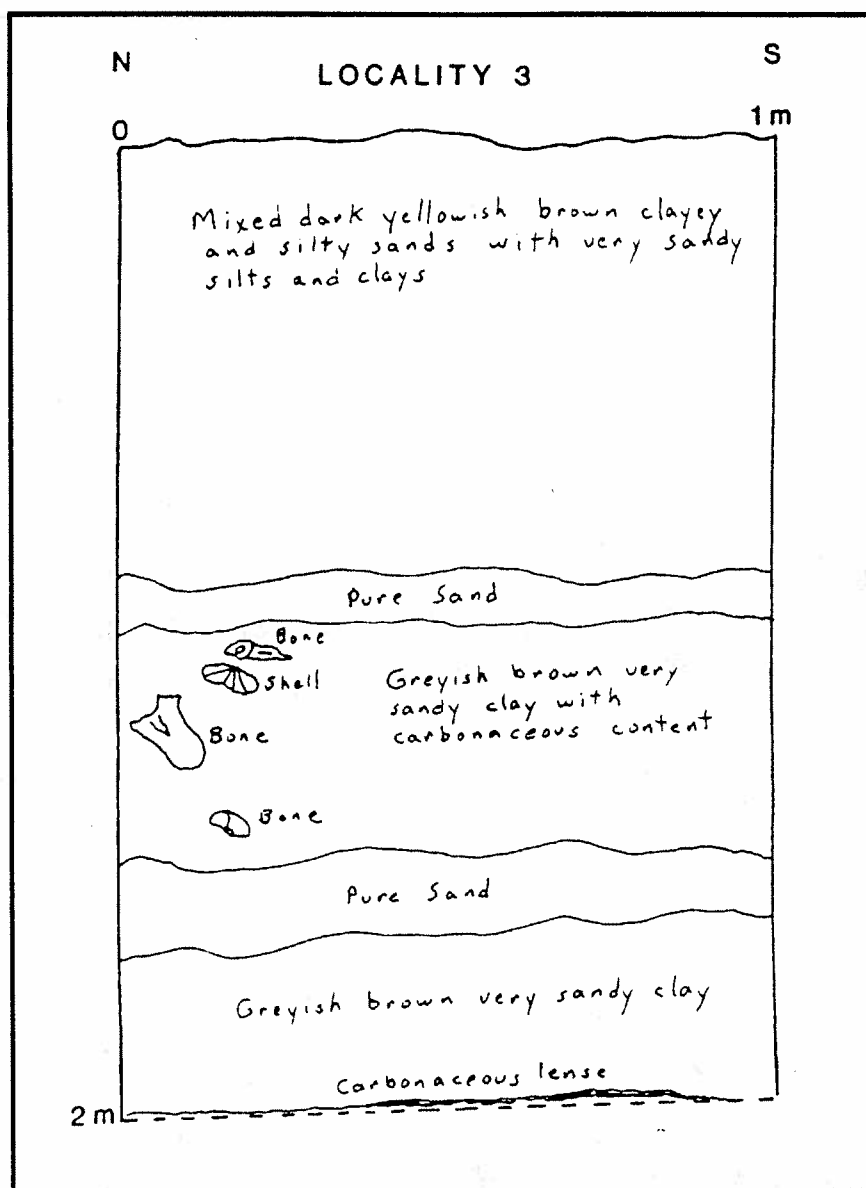 N
S
LOCALITY 3
0
1m
Mixed dark yellowish brown clayey
and silty sands with very sandy
silts and clays
Pure Sand
Bone
Shell
Bone
Bone
Greyish brown very
sandy clay with
carbonaceous content
Pure Sand
Greyish brown very sandy clay
Carbonaceous lense
2m